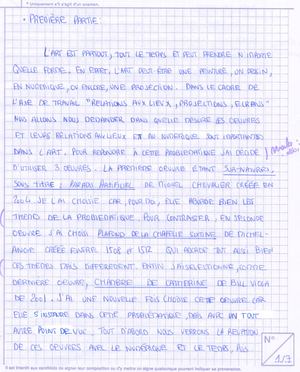 * Uniquement s'il s'agit d'un examen.
• PREMIÈRE PARTIE:
L'ART EST PARTOUT, TOUT LE TEMPS ET PEUT PRENDRE N'IMPORTE
QUELLE FORME. EN EFFET, L'ART PEUT ÊTRE UNE PEINTURE, UN DESSIN,
EN NUMÉRIQUE, OU ENCORE, UNE PROJECTION. DANS LE CADRE DE
L'AXE DE TRAVAIL "RELATIONS AUX LIEUX, PROJECTIONS, ECRANS"
NOUS ALLONS NOUS DEMANDER DANS QUELLE MESURE LES OEUVRES
ET LEURS RELATIONS AUX LIEUX ET AU NUMÉRIQUE SONT IMPORTANTES
DANS L'ART. POUR RÉPONDRE À CETTE PROBLÉMATIQUE J'AI DÉCIDÉ
D'UTILISER 3 OEUVRES. LA PREMIÈRE OEUVRE ÉTANT SUR-NATURES,
SOUS TITRE : PARADIS ARTIFICIEL DE MIGUEL CHEVALIER CRÉÉE EN
2004. JE L'AI CHOISIE CAR, POUR MOI, ELLE ABORDE BIEN LES
THÈMES DE LA PROBLÉMATIQUE. POUR CONTRASTER, EN SECONDE
OEUVRE J'AI CHOISI PLAFOND DE LA CHAPELLE SIXTINE DE MICHEL-
ANGE CRÉÉE ENTRE 1508 ET 1512 QUI ABORDE TOUT AUSSI BIEN
CES THÈMES MAIS DIFFÉREMMENT. ENFIN J'AI SÉLECTIONNÉ, COMME
DERNIÈRE OEUVRE, CHAMBRE DE CATHERINE DE BILL VIOLA
DE 2001. J'AI UNE NOUVELLE FOIS CHOISIE CETTE OEUVRE CAR
ELLE S'INSCRIT DANS CETTE PROBLÉMATIQUE, MAIS AVEC UN TOUT
AUTRE POINT DE VUE. TOUT D'ABORD NOUS VERRONS LA RELATION
DE CES OEUVRES AVEC LE NUMÉRIQUE ET LE TEMPS,
N°
1/7
Il est interdit aux candidats de signer leur composition ou d'y mettre un signe quelconque pouvant indiquer sa provenance.